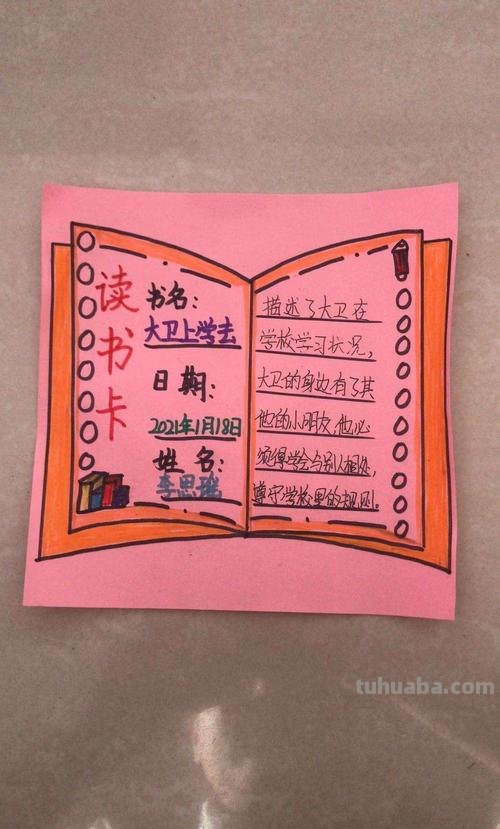 读书卡
书名：
大卫上学去
日期：
2021年1月18日
姓名：
李思瑶
描述了大卫在
学校学习状况，
大卫的身边有了其
他的小朋友，他必
须得学会与别人相处，
遵守学校里的规则。
tuhuaba.com